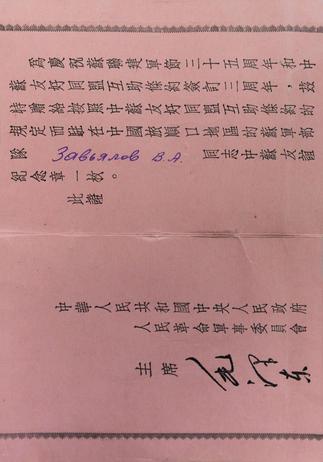 為慶祝蘇聯建軍節三十五周年和中
蘇友好同盟互助條約簽訂三周年，茲
特贈給按照中蘇友好同盟互助條約的
規定而駐在中國旅順口地區的蘇軍部
隊 Завьялов В.А. 同志中蘇友誼
紀念章一枚。
此證
中華人民共和國中央人民政府
人民革命軍事委員會
主席 毛澤东